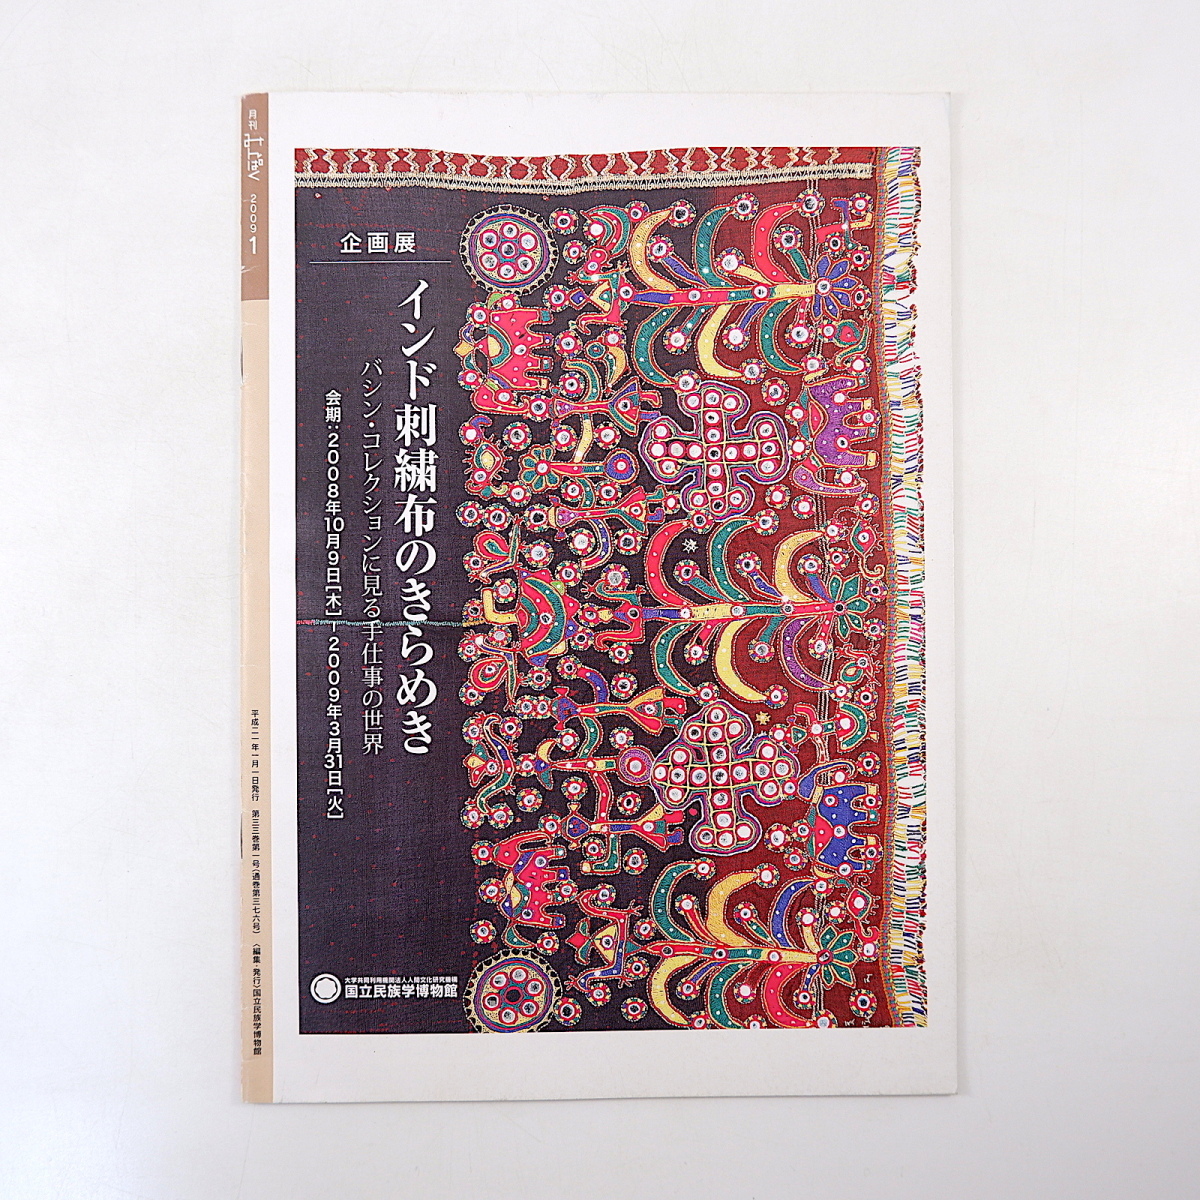 月刊みんぱく 2009 1
企画展
インド刺繍布のきらめき
バシン・コレクションに見る手仕事の世界
会期：2008年10月9日[木]ー2009年3月31日[火]
大学共同利用機関法人人間文化研究機構
国立民族学博物館
平成二一年一月一日発行 第三三巻第一号（通巻第三七六号） 〈編集・発行〉国立民族学博物館